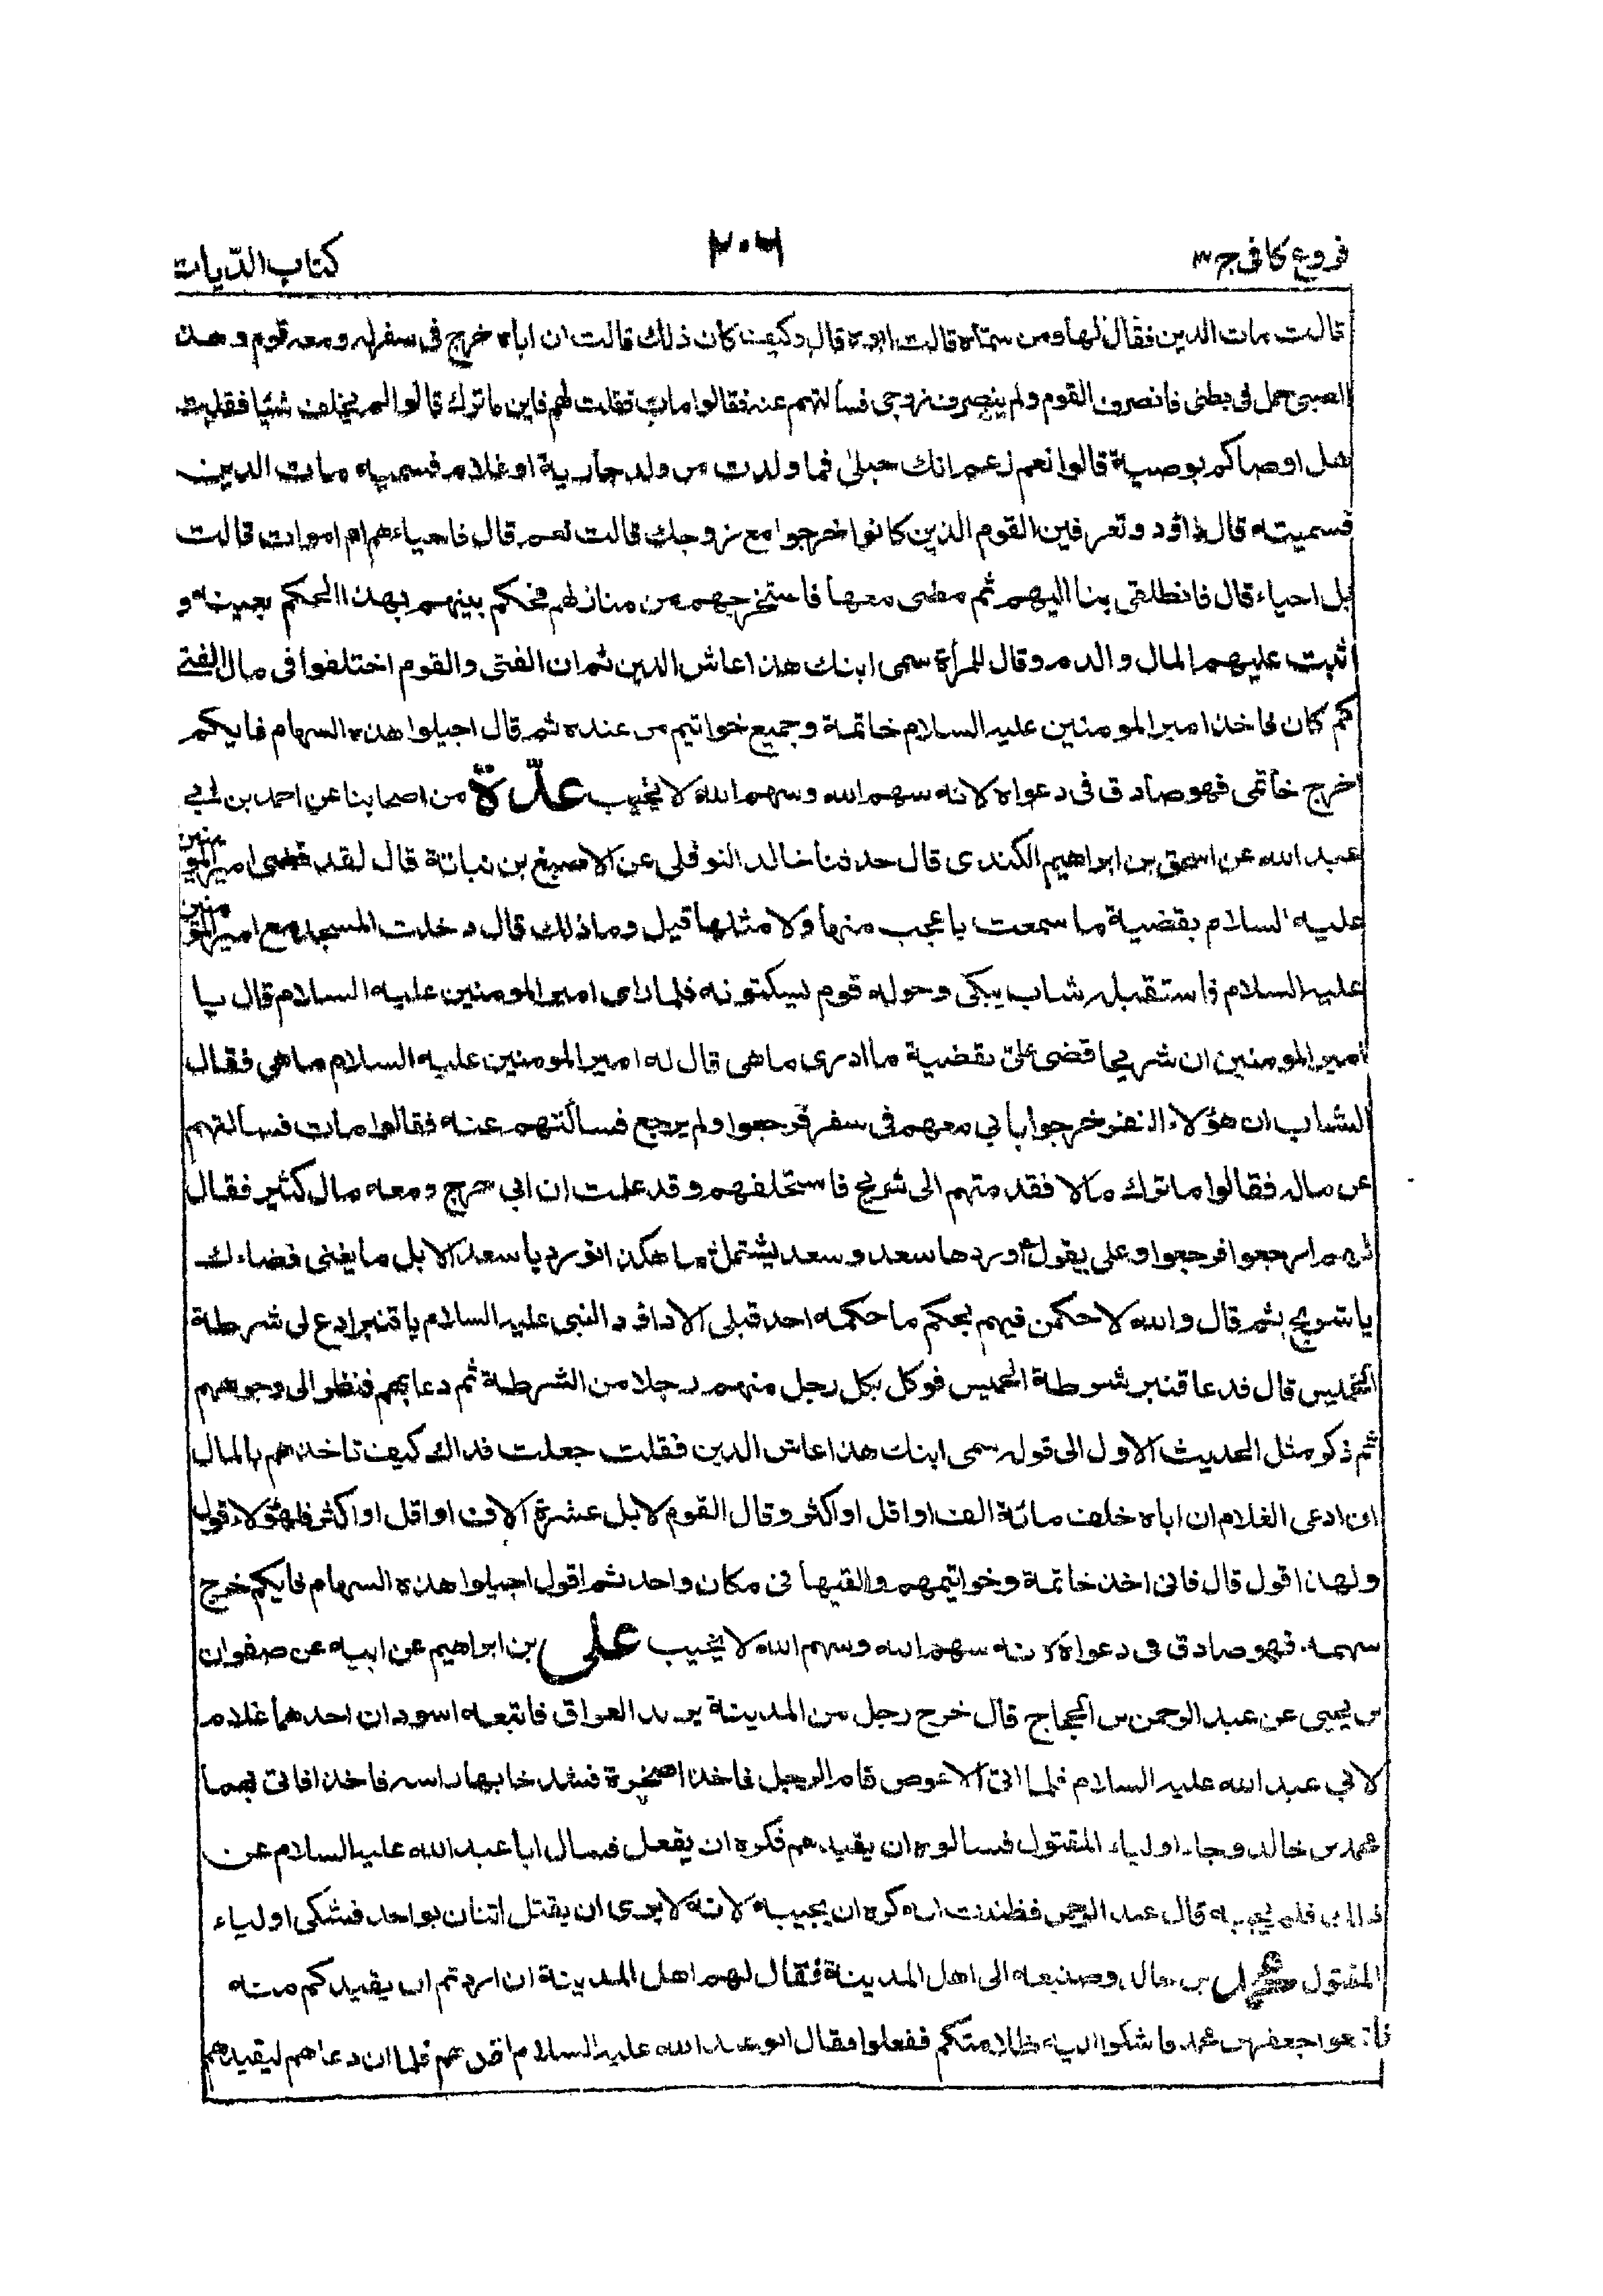 فروع كافی ج ۳
۲۰۶
كتاب الدّيات
قالت مات الدين فقال لها ومن سمّاه قالت ابوه قال وكيف كان ذلك قالت ان اباه خرج فی سفر له ومعه قوم وهذا
الصبی حمل فی بطنی فانصرف القوم ولم ينصرف زوجی فسألتهم عنه فقالوا مات فقلت لهم فاين ما ترك قالوا لم يخلف شيئا فقلت
هل اوصاكم بوصية قالوا نعم زعم انك حبلیٰ فما ولدت من ولد جارية او غلام فسميه مات الدين
فسميته قال داؤد وتعرفين القوم الذين كانوا خرجوا مع زوجك قالت نعم قال فاحياء هم ام اموات قالت
بل احياء قال فانطلقی بنا اليهم ثم مضی معها فاستخرجهم من منازلهم فحكم بينهم بهذا الحكم بعينه و
اثبت عليهم المال والدم وقال للمرأة سمی ابنك هذا عاش الدين ثم ان الفتی والقوم اختلفوا فی مال الفتی
كم كان فاخذ امير المومنين عليه السلام خاتمة وجميع خواتيم من عنده ثم قال اجيلوا هذه السهام فايكم
اخرج خاتمی فهو صادق فی دعواه لانه سهم الله وسهم الله لا يخيب عدّة من اصحابنا عن احمد بن ابی
عبد الله عن اسحق بن ابراهيم الكندی قال حدثنا خالد النوفلی عن الاصبغ بن نباتة قال لقد قضی امير المومنين
عليه السلام بقضية ما سمعت باعجب منها ولا مثلها قيل وما ذلك قال دخلت المسجد مع امير المومنين
عليه السلام فاستقبله شاب يبكی وحوله قوم يسكتونه فلما رای امير المومنين عليه السلام قال يا
امير المومنين ان شريحا قضی علیّ بقضية ما ادری ما هی قال له امير المومنين عليه السلام ما هی فقال
الشاب ان هؤلاء النفر خرجوا بابی معهم فی سفر فرجعوا ولم يرجع فسألتهم عنه فقالوا مات فسألتهم
عن ماله فقالوا ما ترك مالا فقدمتهم الی شريح فاستحلفهم وقد علمت ان ابی خرج ومعه مال كثير فقال
لهم ارجعوا فرجعوا وعلی يقول اوردها سعد وسعد يشتمل ما هكذا تورد يا سعد الابل ما يغنی قضاءك
يا شريح ثم قال والله لاحكمن فيهم بحكم ما حكمه احد قبلی الا داؤد النبی عليه السلام يا قنبر ادع لی شرطة
الخميس قال فدعا قنبر شرطة الخميس فوكل بكل رجل منهم رجلا من الشرطة ثم دعا بهم فنظر الی وجوههم
ثم ذكر مثل الحديث الاول الی قوله سمی ابنك هذا عاش الدين فقلت جعلت فداك كيف تاخذهم بالمال
ان ادعی الغلام ان اباه خلف مائة الف او اقل او اكثر وقال القوم لا بل عشرة آلاف او اقل او اكثر فلهؤلاء قول
ولهذا قول قال فانی اخذ خاتمة وخواتيمهم والقيها فی مكان واحد ثم اقول اجيلوا هذه السهام فايكم خرج
سهمه فهو صادق فی دعواه لانه سهم الله وسهم الله لا يخيب علی بن ابراهيم عن ابيه عن صفوان
بن يحيی عن عبد الرحمن بن الحجاج قال خرج رجل من المدينة يريد العراق فاتبعه اسودان احدهما غلام
لابی عبد الله عليه السلام فلما اتی الاعوص نام الرجل فاخذا صخرة فشدخا بها راسه فاخذا فاتی بهما
محمد بن خالد وجاء اولياء المقتول فسالوه ان يقيدهم فكره ان يفعل فسال ابا عبد الله عليه السلام عن
ذلك فلم يجبه قال عبد الرحمن فظننت انه كره ان يجيبه لانه لا يری ان يقتل اثنان بواحد فشكی اولياء
المقتول محمد بن خالد وصنيعه الی اهل المدينة فقال لهم اهل المدينة ان اردتم ان يقيدكم منه
فاتبعوا جعفر بن محمد فاشكوا اليه ظلامتكم ففعلوا فقال ابو عبد الله عليه السلام اقدهم فلما ان دعاهم ليقيدهم